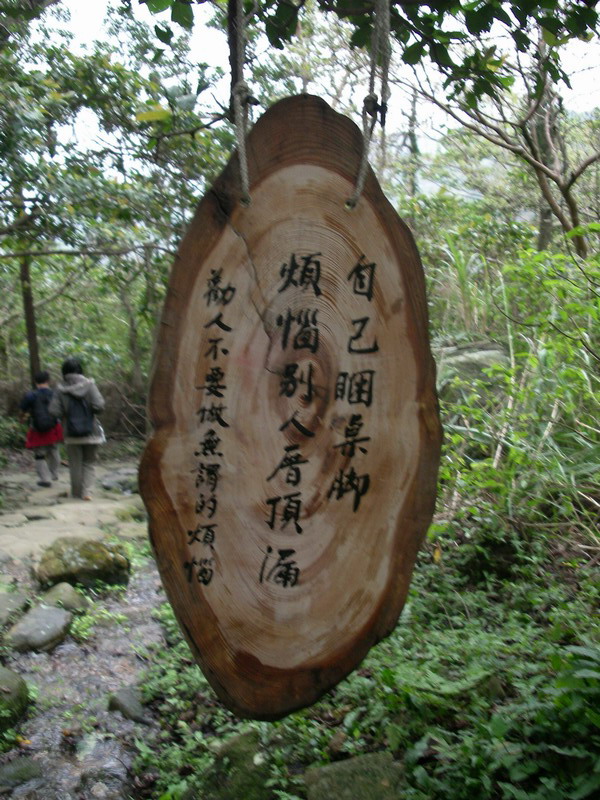 自己睏桌脚
煩惱別人厝頂漏
勸人不要做無謂的煩惱